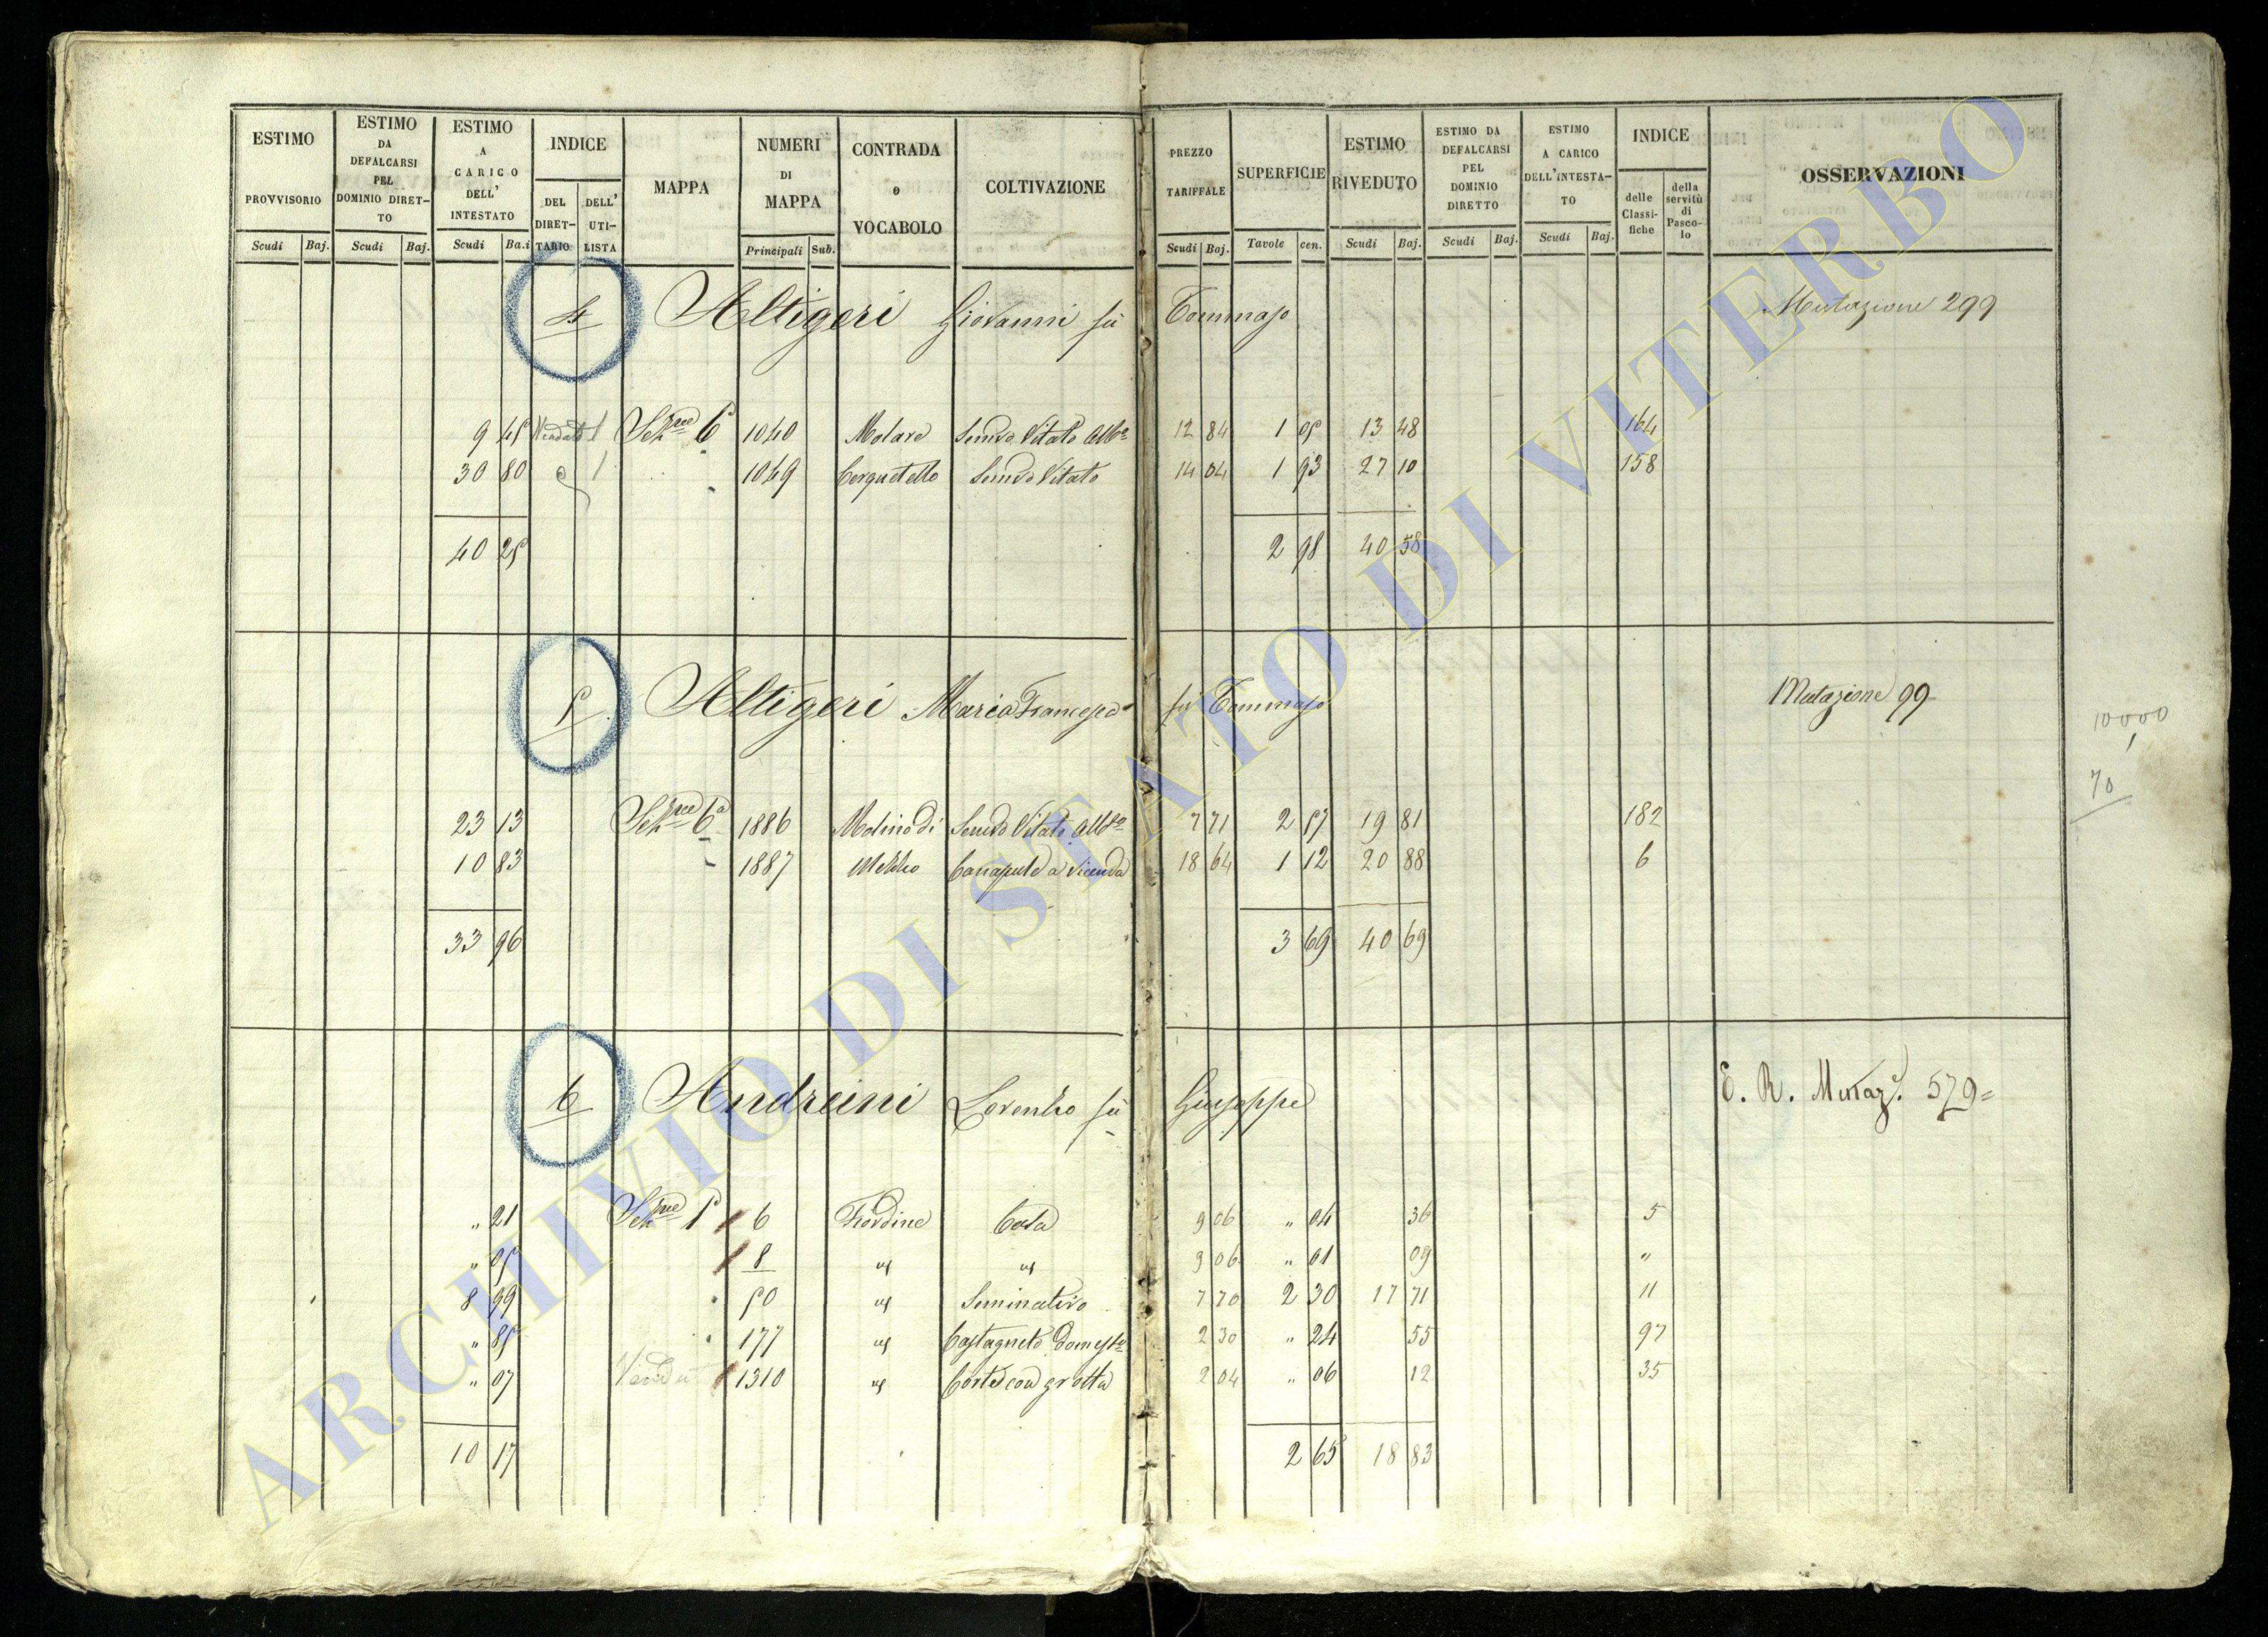 ESTIMO PROVVISORIO Scudi Baj. ESTIMO DA DEFALCARSI PEL DOMINIO DIRETTO Scudi Baj. ESTIMO A CARICO DELL' INTESTATO Scudi Ba.i INDICE DEL DIRETTARIO DELL' UTILISTA MAPPA NUMERI DI MAPPA Principali Sub. CONTRADA o VOCABOLO COLTIVAZIONE PREZZO TARIFFALE Scudi Baj. SUPERFICIE Tavole cen. ESTIMO RIVEDUTO Scudi Baj. ESTIMO DA DEFALCARSI PEL DOMINIO DIRETTO Scudi Baj. ESTIMO A CARICO DELL'INTESTATO Scudi Baj. INDICE delle Classifiche della servitù di Pascolo OSSERVAZIONI
4 Altigeri Giovanni fu Tommaso Mutazione 299
9 45 Sez.ne 6 1040 Molare Semvo Vitato 12 84 1 05 13 48 164
30 80 1049 Cerquetello Semvo Vitato 14 04 1 93 27 10 158
40 25 2 98 40 58
5 Altigeri Maria Francesca fu Tommaso Mutazione 99
10000
70
23 13 Sez.ne 6a 1886 Molino di Semvo Vitato 7 71 2 57 19 81 182
10 83 1887 Mezzo Canapule a vicenda 18 64 1 12 20 88 6
33 96 3 69 40 69
6 Andreini Lorenzo fu Giuseppe E. R. Mutaz. 579=
" 21 Sez.ne 5 6 Fiordine Casa 9 06 " 04 36 5
" 05 8 " " 9 06 " 01 09 "
8 99 50 " Seminativo 7 70 2 30 17 71 11
" 85 177 " Castagneto Domestº 2 30 " 24 55 97
" 07 1310 " Corte con grotta 2 04 " 06 12 35
10 17 2 65 18 83
ARCHIVIO DI STATO DI VITERBO